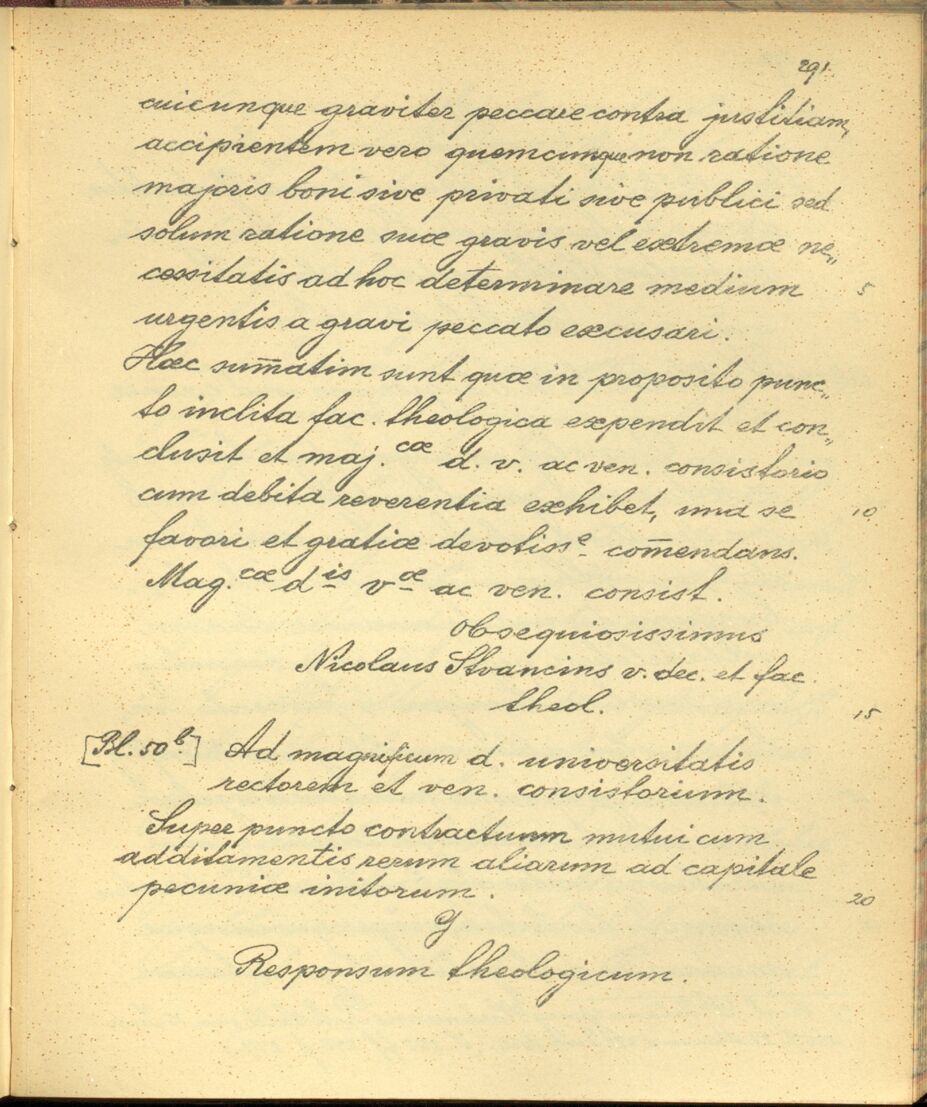 291.
cuicunque graviter peccare contra justitiam,
accipientem vero quemcunque non ratione
majoris boni sive privati sive publici sed
solum ratione suæ gravis vel extremæ ne„
cessitatis ad hoc determinare medium
5
urgentis a gravi peccato excusari.
Hæc sum̄atim sunt quæ in proposito punc„
to inclita fac. theologica expendit et con„
clusit et maj.cæ d. v. ac ven. consistorio
cum debita reverentia exhibet, una se
10
favori et gratiæ devotisse com̄endans.
Mag.cæ dis væ ac ven. consist.
Obsequiosissimus
Nicolaus v. dec. et fac.
theol.
15
[Bl. 50b.] Ad magnificum d. universitatis
rectorem et ven. consistorium.
Super puncto contractuum mutui cum
additamentis rerum aliarum ad capitale
pecuniæ initorum.
20
Responsum theologicum.